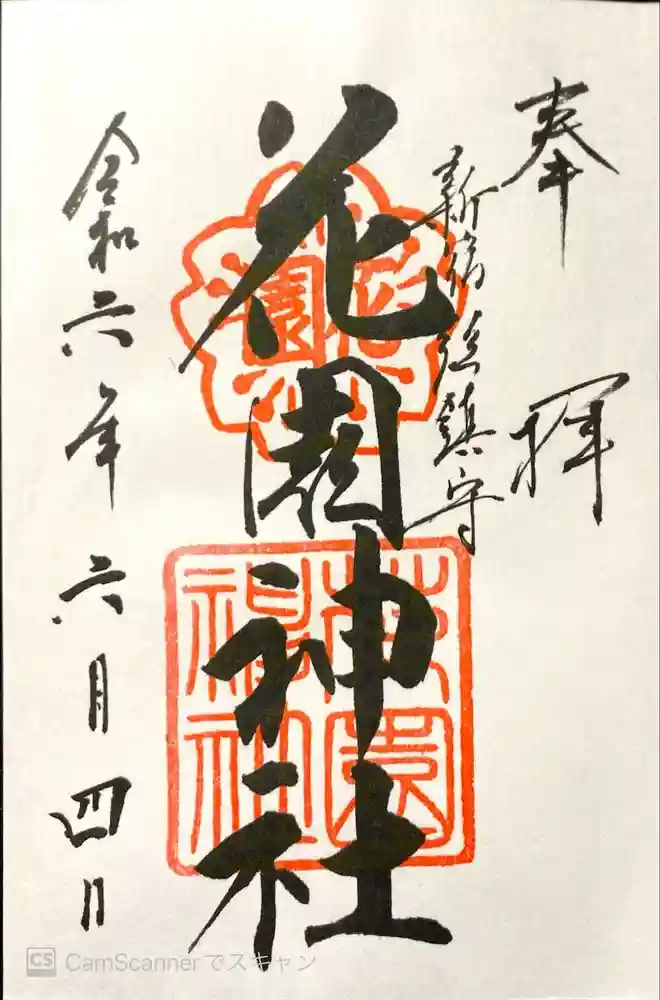 奉拝
新宿總鎮守
花園神社
花園
花園神社
令和六年六月四日
CS CamScannerでスキャン